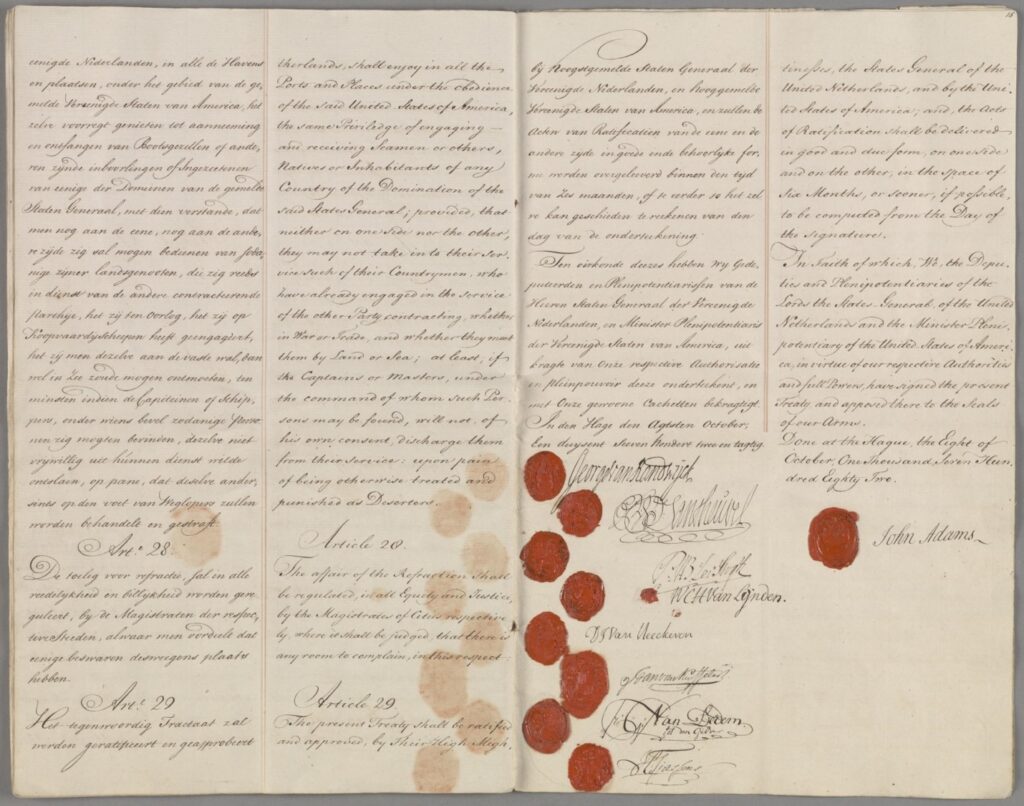 eenigde Nederlanden, in alle de Havens
en plaatsen, onder het gebied van de ge,
melde Vereenigde Staten van America, het
zelve voorregt genieten tot aanneeming
en ontfangen van Bootsgezellen of ande,
ren zijnde inboorlingen of Ingezetenen
van eenige der Dominien van de gemelde
Staten Generaal, met dien verstande, dat
men nog aan de eene, nog aan de ande,
re zijde zig sal mogen bedienen van
nige zijner landsgenooten, die zig reeds
in dienst van de andere contracteerende
parthye, het zij ten Oorlog, het zij op
Koopvaardyscheepen heeft geengageert,
het zij men dezelve aan de vaste wal, dan
wel in Zee zoude mogen ontmoeten, ten
minsten indien de Capiteinen of Schip,
pers, onder wiens bevel zodanige
nen zig mogten bevinden, dezelve niet
vrywillig uit hunnen dienst wilde
ontslaan, op pæne, dat deselve ander,
sints op den voet van Weglopers zullen
worden behandelt en gestraft.
Art: 28
De toeleg voor refractie, sal en alle
reedelykheid en billykheid worden gere
guleert, by de Magistraten der respec,
tive Steeden, alwaar men oordeelt dat
eenige beswaren desweegens plaats
hebben.
Art: 29
Het tegenwoordig Tractaat zal
werden geratificeert en geapprobeert
therlands, shall enjoy in all the
Ports and Places under the obedience
of the said United States of America,
the same Priviledge of engaging
and receiving Seamen or others,
Natives or Inhabitants of any
Country of the Domination of the
said States General; provided, that
neither on one side nor the other,
they may not take into their Ser
vice such of their Countrymen, who
have already engaged in the Service
of the other Party contracting, whether
in War or Trade, and whether they meet
them by Land or Sea; at least, if
the Captains or Masters, under
the command of whom such Per
sons may be found, will not, of
his own consent, discharge them
from their service: upon pain
of being otherwise treated and
punished as Deserters.
Article 28.
The affair of the Refraction shall
be regulated, in all Equity and Justice,
by the Magistrates of Cities respective
ly, where it shall be judged, that there is
any room to complain, in this respect.
Article 29
The present Treaty shall be ratified
and approved, by Their High Migh,
by Hoogstgemelde Staten Generaal der
Vereenigde Nederlanden, en Hooggemelte
Vereenigde Staten van America, en zullen de
Acten van Ratificatien van de eene en de
andere zijde in goede ende behoorlyke for,
me werden overgeleverd binnen den tyd
van Zes maanden, of te eerder so het zel
ve kan geschieden te reekenen van den
dag van de ondertekening
Ten oirkonde deezes hebben Wy Gede,
puteerden en Plenipotentiarissen van de
Heeren Staten Generaal der Vereenigde
Nederlanden, en Minister Plenipotentiaris
der Vereenigde Staten van America, uit
kragte van Onse respective Authorisatie
en pleinpouvoir deeze ondertekent, en
met Onze gewoone Cachetten bekragtigt.
In den Hage den Agtsten October,
Een duysent Seeven Hondert twee en tagtig.
George van Randwijck
W C H Van Lijnden.
D J Van Heeckeren
18
tinesses, the States General of the
United Netherlands, and by the Uni,
ted States of America; and, the Acts
of Ratification shall be delivered
in good and due form, on one Side
and on the other, in the space of
Six Months, or sooner, if possible,
to be computed from the Day of
the signature.
In Faith of which, We, the Depu
ties and Plenipotentiaries of the
Lords the States General of the United
Netherlands and the Minister Pleni
potentiary of the United States of Ameri
ca, in virtue of our respective Authorities
and full Powers, have signed the present
Treaty and apposed thereto the Seals
of our Arms.
Done at the Hague, the Eight of
October, One Thousand Seven Hun
dred Eighty Two.
John Adams